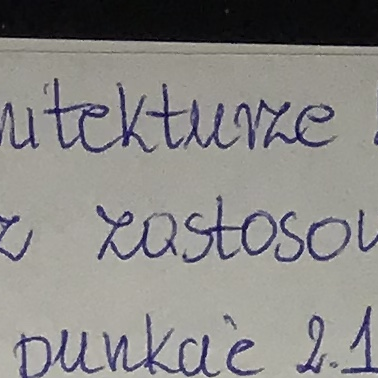 hitekturze
z zastosow
punkcie 2.1